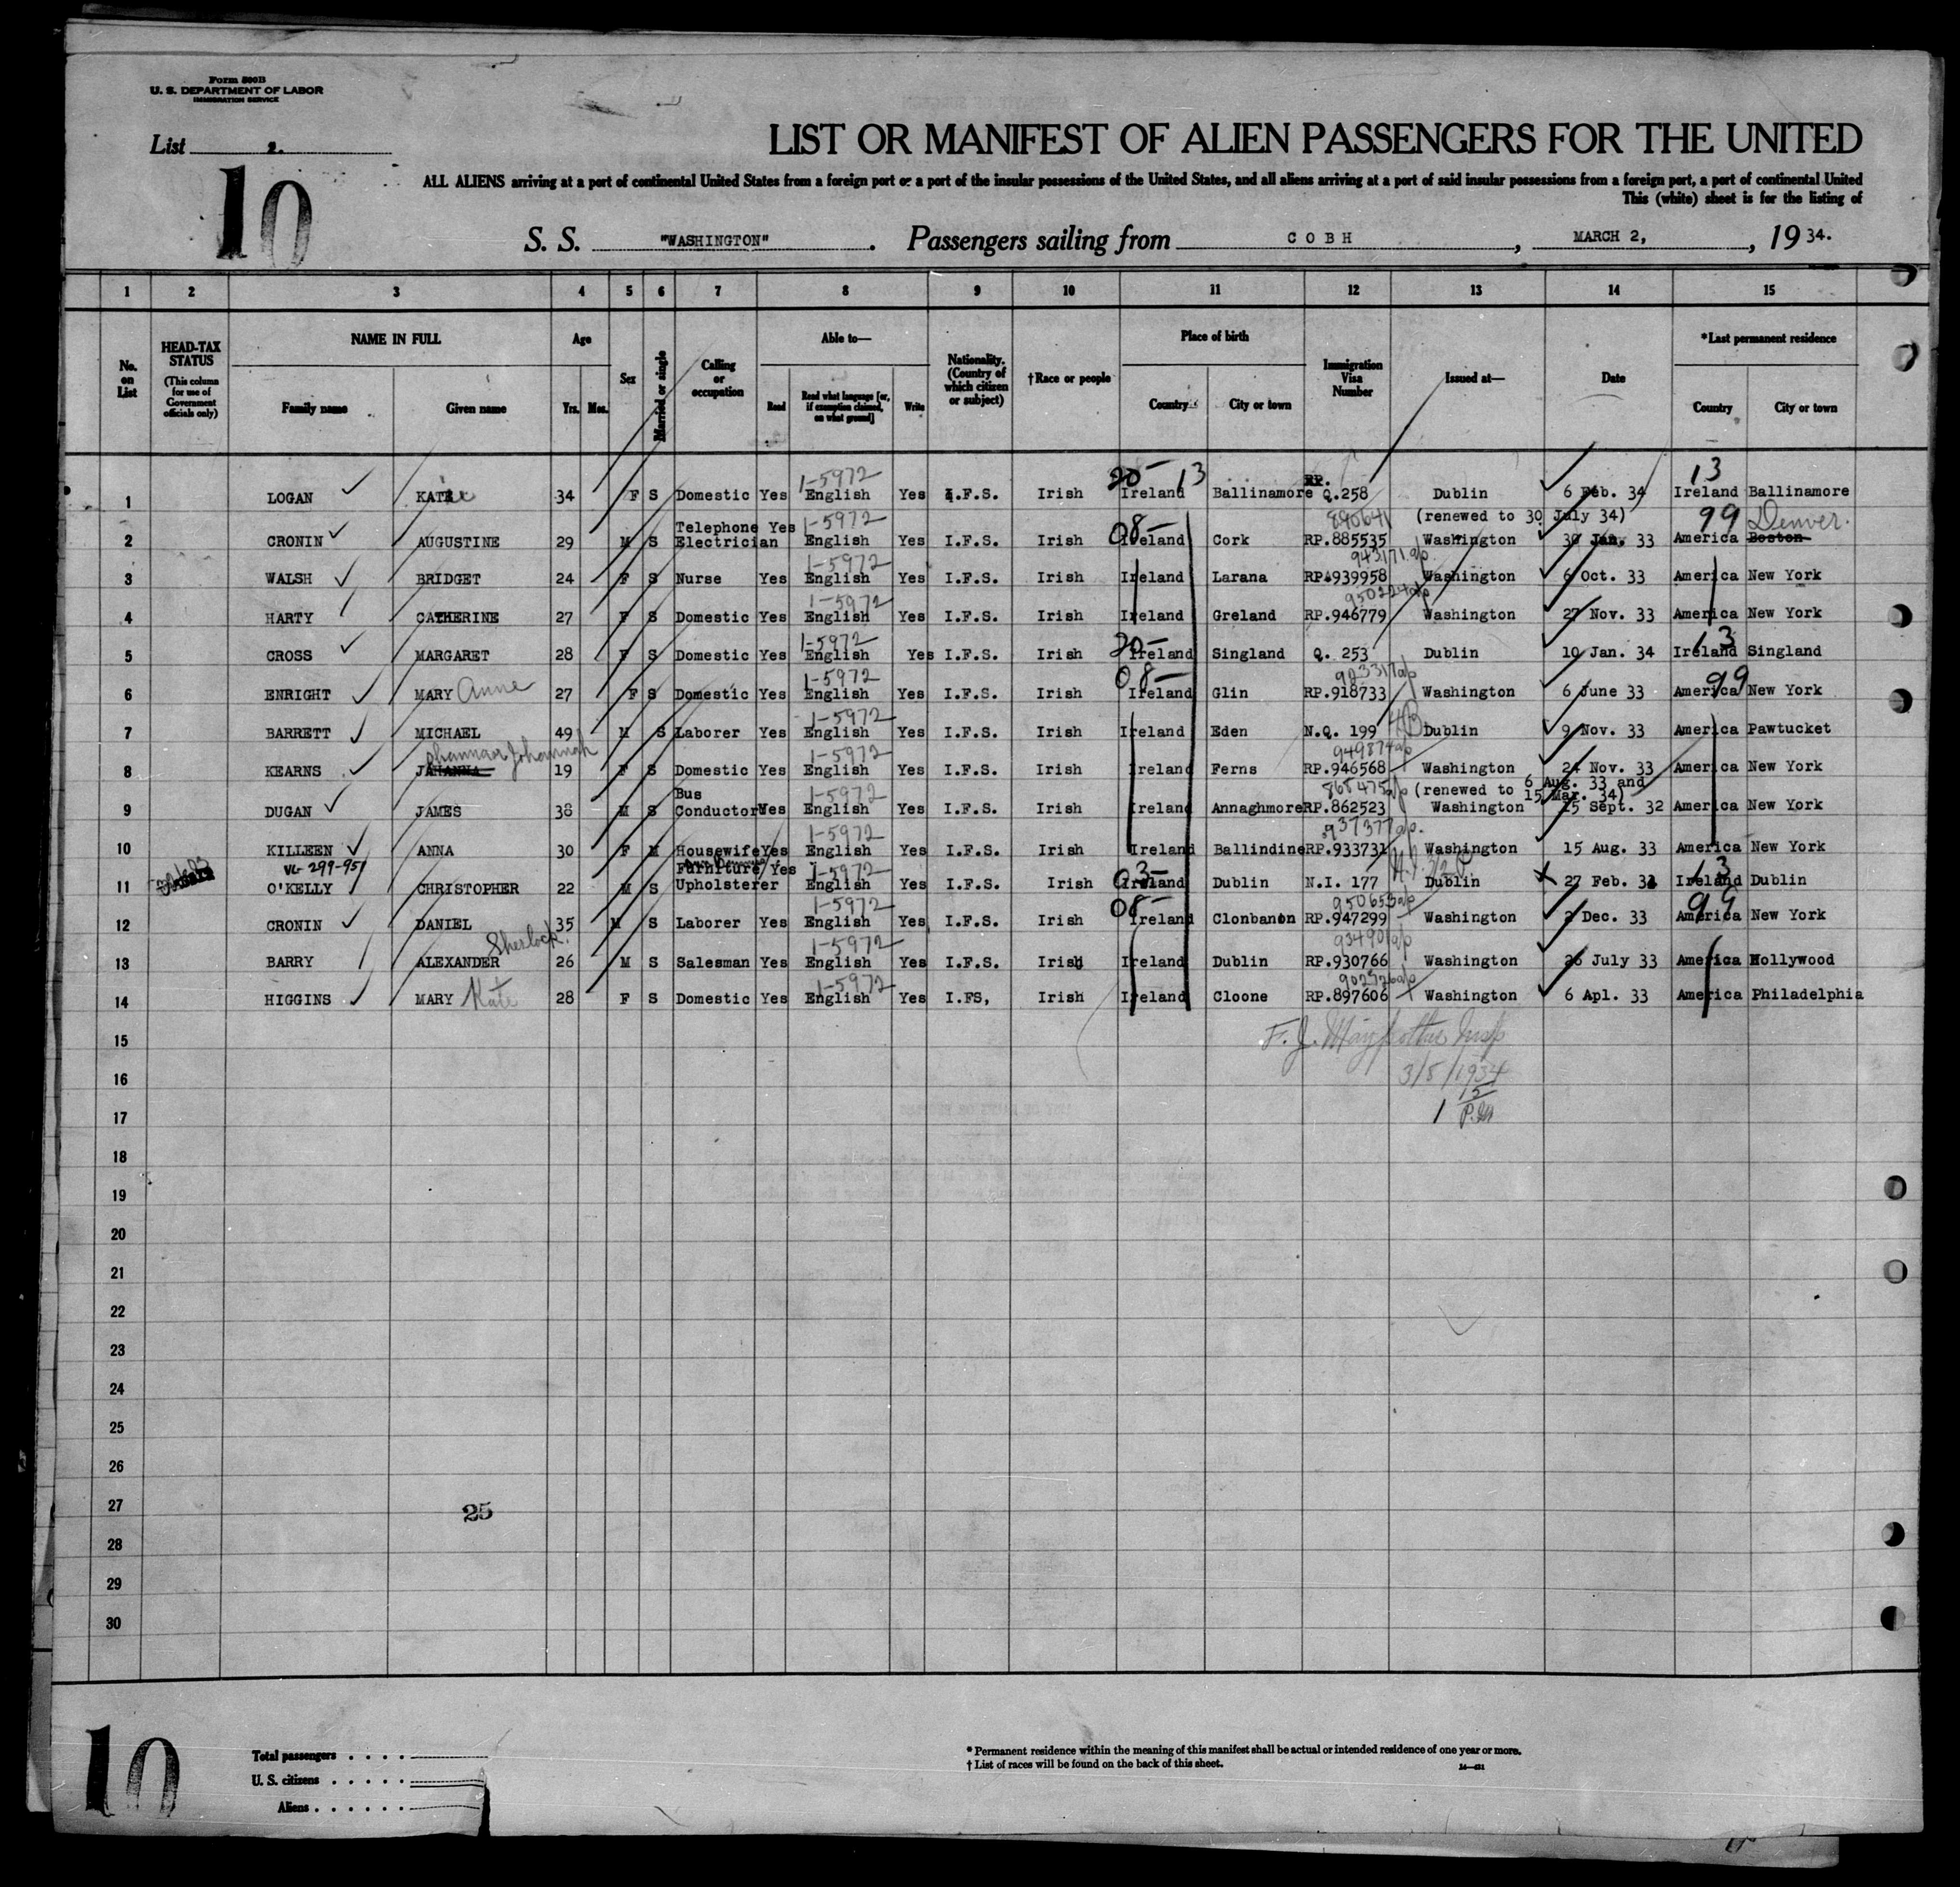 Form 500B
U. S. DEPARTMENT OF LABOR
IMMIGRATION SERVICE
List 2.
10
LIST OR MANIFEST OF ALIEN PASSENGERS FOR THE UNITED
ALL ALIENS arriving at a port of continental United States from a foreign port or a port of the insular possessions of the United States, and all aliens arriving at a port of said insular possessions from a foreign port, a port of continental United
This (white) sheet is for the listing of
S. S. "WASHINGTON". Passengers sailing from COBH, MARCH 2, , 1934.
1 2 3 4 5 6 7 8 9 10 11 12 13 14 15
No. on List
HEAD-TAX STATUS (This column for use of Government officials only)
NAME IN FULL Family name Given name
Age Yrs. Mos.
Sex
Married or single
Calling or occupation
Able to— Read Read what language [or, if exemption claimed, on what ground] Write
Nationality. (Country of which citizen or subject)
†Race or people
Place of birth Country City or town
Immigration Visa Number
Issued at—
Date
*Last permanent residence Country City or town
1-5972 20- 13 RP. 13
1 LOGAN KATIE 34 F S Domestic Yes English Yes I.F.S. Irish Ireland Ballinamore Q.258 Dublin 6 Feb. 34 Ireland Ballinamore
Telephone Yes 1-5972 08- 890641 (renewed to 30 July 34) 99 Denver.
2 CRONIN AUGUSTINE 29 M S Electrician English Yes I.F.S. Irish Ireland Cork RP.885535 Washington 30 Jan. 33 America Boston
1-5972 943171
3 WALSH BRIDGET 24 F S Nurse Yes English Yes I.F.S. Irish Ireland Larana RP.939958 Washington 6 Oct. 33 America New York
1-5972 950224
4 HARTY CATHERINE 27 F S Domestic Yes English Yes I.F.S. Irish Ireland Greland RP.946779 Washington 27 Nov. 33 America New York
1-5972 20- 13
5 CROSS MARGARET 28 F S Domestic Yes English Yes I.F.S. Irish Ireland Singland Q. 253 Dublin 10 Jan. 34 Ireland Singland
1-5972 08- 99
6 ENRIGHT MARY Anne 27 F S Domestic Yes English Yes I.F.S. Irish Ireland Glin RP.918733 Washington 6 June 33 America New York
1-5972
7 BARRETT MICHAEL 49 M S Laborer Yes English Yes I.F.S. Irish Ireland Eden N.Q. 199 Dublin 9 Nov. 33 America Pawtucket
Johannah 1-5972 949874
8 KEARNS JAHANNA 19 F S Domestic Yes English Yes I.F.S. Irish Ireland Ferns RP.946568 Washington 24 Nov. 33 America New York
Bus 1-5972 868475 (renewed to 6 Aug. 33 and 15 Mar. 34)
9 DUGAN JAMES 38 M S Conductor Yes English Yes I.F.S. Irish Ireland Annaghmore RP.862523 Washington 15 Sept. 32 America New York
1-5972 937377
10 KILLEEN ANNA 30 F M Housewife Yes English Yes I.F.S. Irish Ireland Ballindine RP.933731 Washington 15 Aug. 33 America New York
VL-299-951 Furniture Yes 1-5972 03- 13
11 O'KELLY CHRISTOPHER 22 M S Upholsterer English Yes I.F.S. Irish Ireland Dublin N.I. 177 Dublin 27 Feb. 34 Ireland Dublin
1-5972 08- 950653 99
12 CRONIN DANIEL 35 M S Laborer Yes English Yes I.F.S. Irish Ireland Clonbanon RP.947299 Washington 2 Dec. 33 America New York
Sherlock. 1-5972 934901
13 BARRY ALEXANDER 26 M S Salesman Yes English Yes I.F.S. Irish Ireland Dublin RP.930766 Washington 26 July 33 America Hollywood
1-5972 902926
14 HIGGINS MARY Kate 28 F S Domestic Yes English Yes I.FS, Irish Ireland Cloone RP.897606 Washington 6 Apl. 33 America Philadelphia
15 F. J. Insp
16 3/5/1934
17 1 15 P.M
18
19
20
21
22
23
24
25
26
27 25
28
29
30
10
Total passengers . . . .
U. S. citizens . . . . .
Aliens . . . . . .
* Permanent residence within the meaning of this manifest shall be actual or intended residence of one year or more.
† List of races will be found on the back of this sheet.